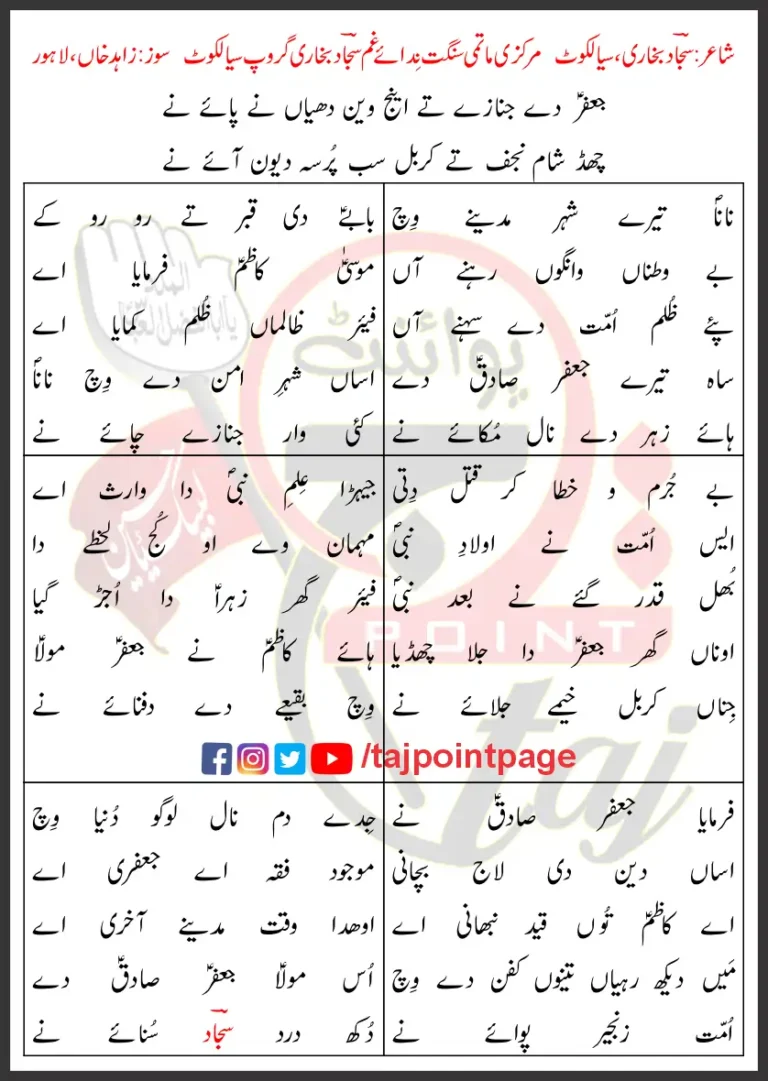 شاعر: سجاد بخاری، سیالکوٹ مرکزی ماتمی سنگت نِدائے غم سجاد بخاری گروپ سیالکوٹ سوز: زاہد خاں، لاہور
جعفرؑ دے جنازے تے اینج وین دھیاں نے پائے نے
چھڈ شام نجف تے کربل سب پُرسہ دیون آئے نے
ناناؐ تیرے شہر مدینے وِچ
بے وطناں وانگوں رہنے آں
پئے ظُلم اُمّت دے سہنے آں
ساہ تیرے جعفر صادقؑ دے
ہائے زہر دے نال مُکائے نے
بابےؑ دی قبر تے رو رو کے
موسیٰ کاظمؑ فرمایا اے
فیئر ظالماں ظُلم کمایا اے
اساں شہرِ امن دے وِچ ناناؐ
کئی وار جنازے چائے نے
بے جُرم و خطا کر قتل دِتی
ایس اُمّت نے اولادِ نبیؐ
بُھل قدر گئے نے بعد نبیؐ
اوناں گھر جعفرؑ دا جلا چھڈیا
جِناں کربل خیمے جلائے نے
جیہڑا عِلمِ نبیؐ دا وارث اے
مہمان وے او کُج لحظے دا
فیئر گھر زہراؑ دا اُجڑ گیا
ہائے کاظمؑ نے جعفرؑ مولاؑ
وِچ بقیعے دے دفنائے نے
/tajpointpage
فرمایا جعفر صادقؑ نے
اساں دین دی لاج بچانی
اے کاظمؑ تُوں قید نبھانی اے
مَیں دیکھ رہیاں تینوں کفن دے وِچ
اُمّت زنجیر پوائے نے
جِدے دم نال لوگو دُنیا وِچ
موجود فقہ اے جعفری اے
اوھدا وقت مدینے آخری اے
اُس مولاؑ جعفرؑ صادقؑ دے
دُکھ درد سجاد سُنائے نے
پوائنٹ
تاج
POINT
taj
لبیک یا حسینؑ